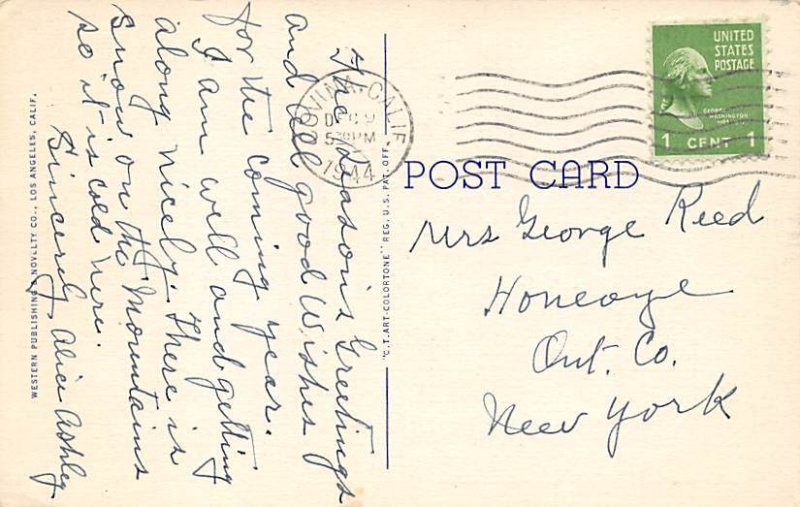 The Season's Greetings
and all good Wishes
for the coming year.
I am well and getting
along nicely. There is
snow on the Mountains
so it is cold here.
Sincerely Alice Ashley
WESTERN PUBLISHING & NOVELTY CO., LOS ANGELES, CALIF.
"C.T. ART-COLORTONE" REG. U.S. PAT. OFF.
COVINA, CALIF.
DEC 9
1944
UNITED
STATES
POSTAGE
1 CENT 1
POST CARD
Mrs George Reed
Honeoye
Ont. Co.
New York